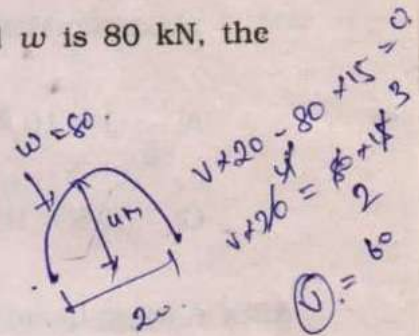 d w is 80 kN, the
w = 80.
4m
20.
V×20 - 80×15 = 0
V×20 = 80×15
4
3
2
60